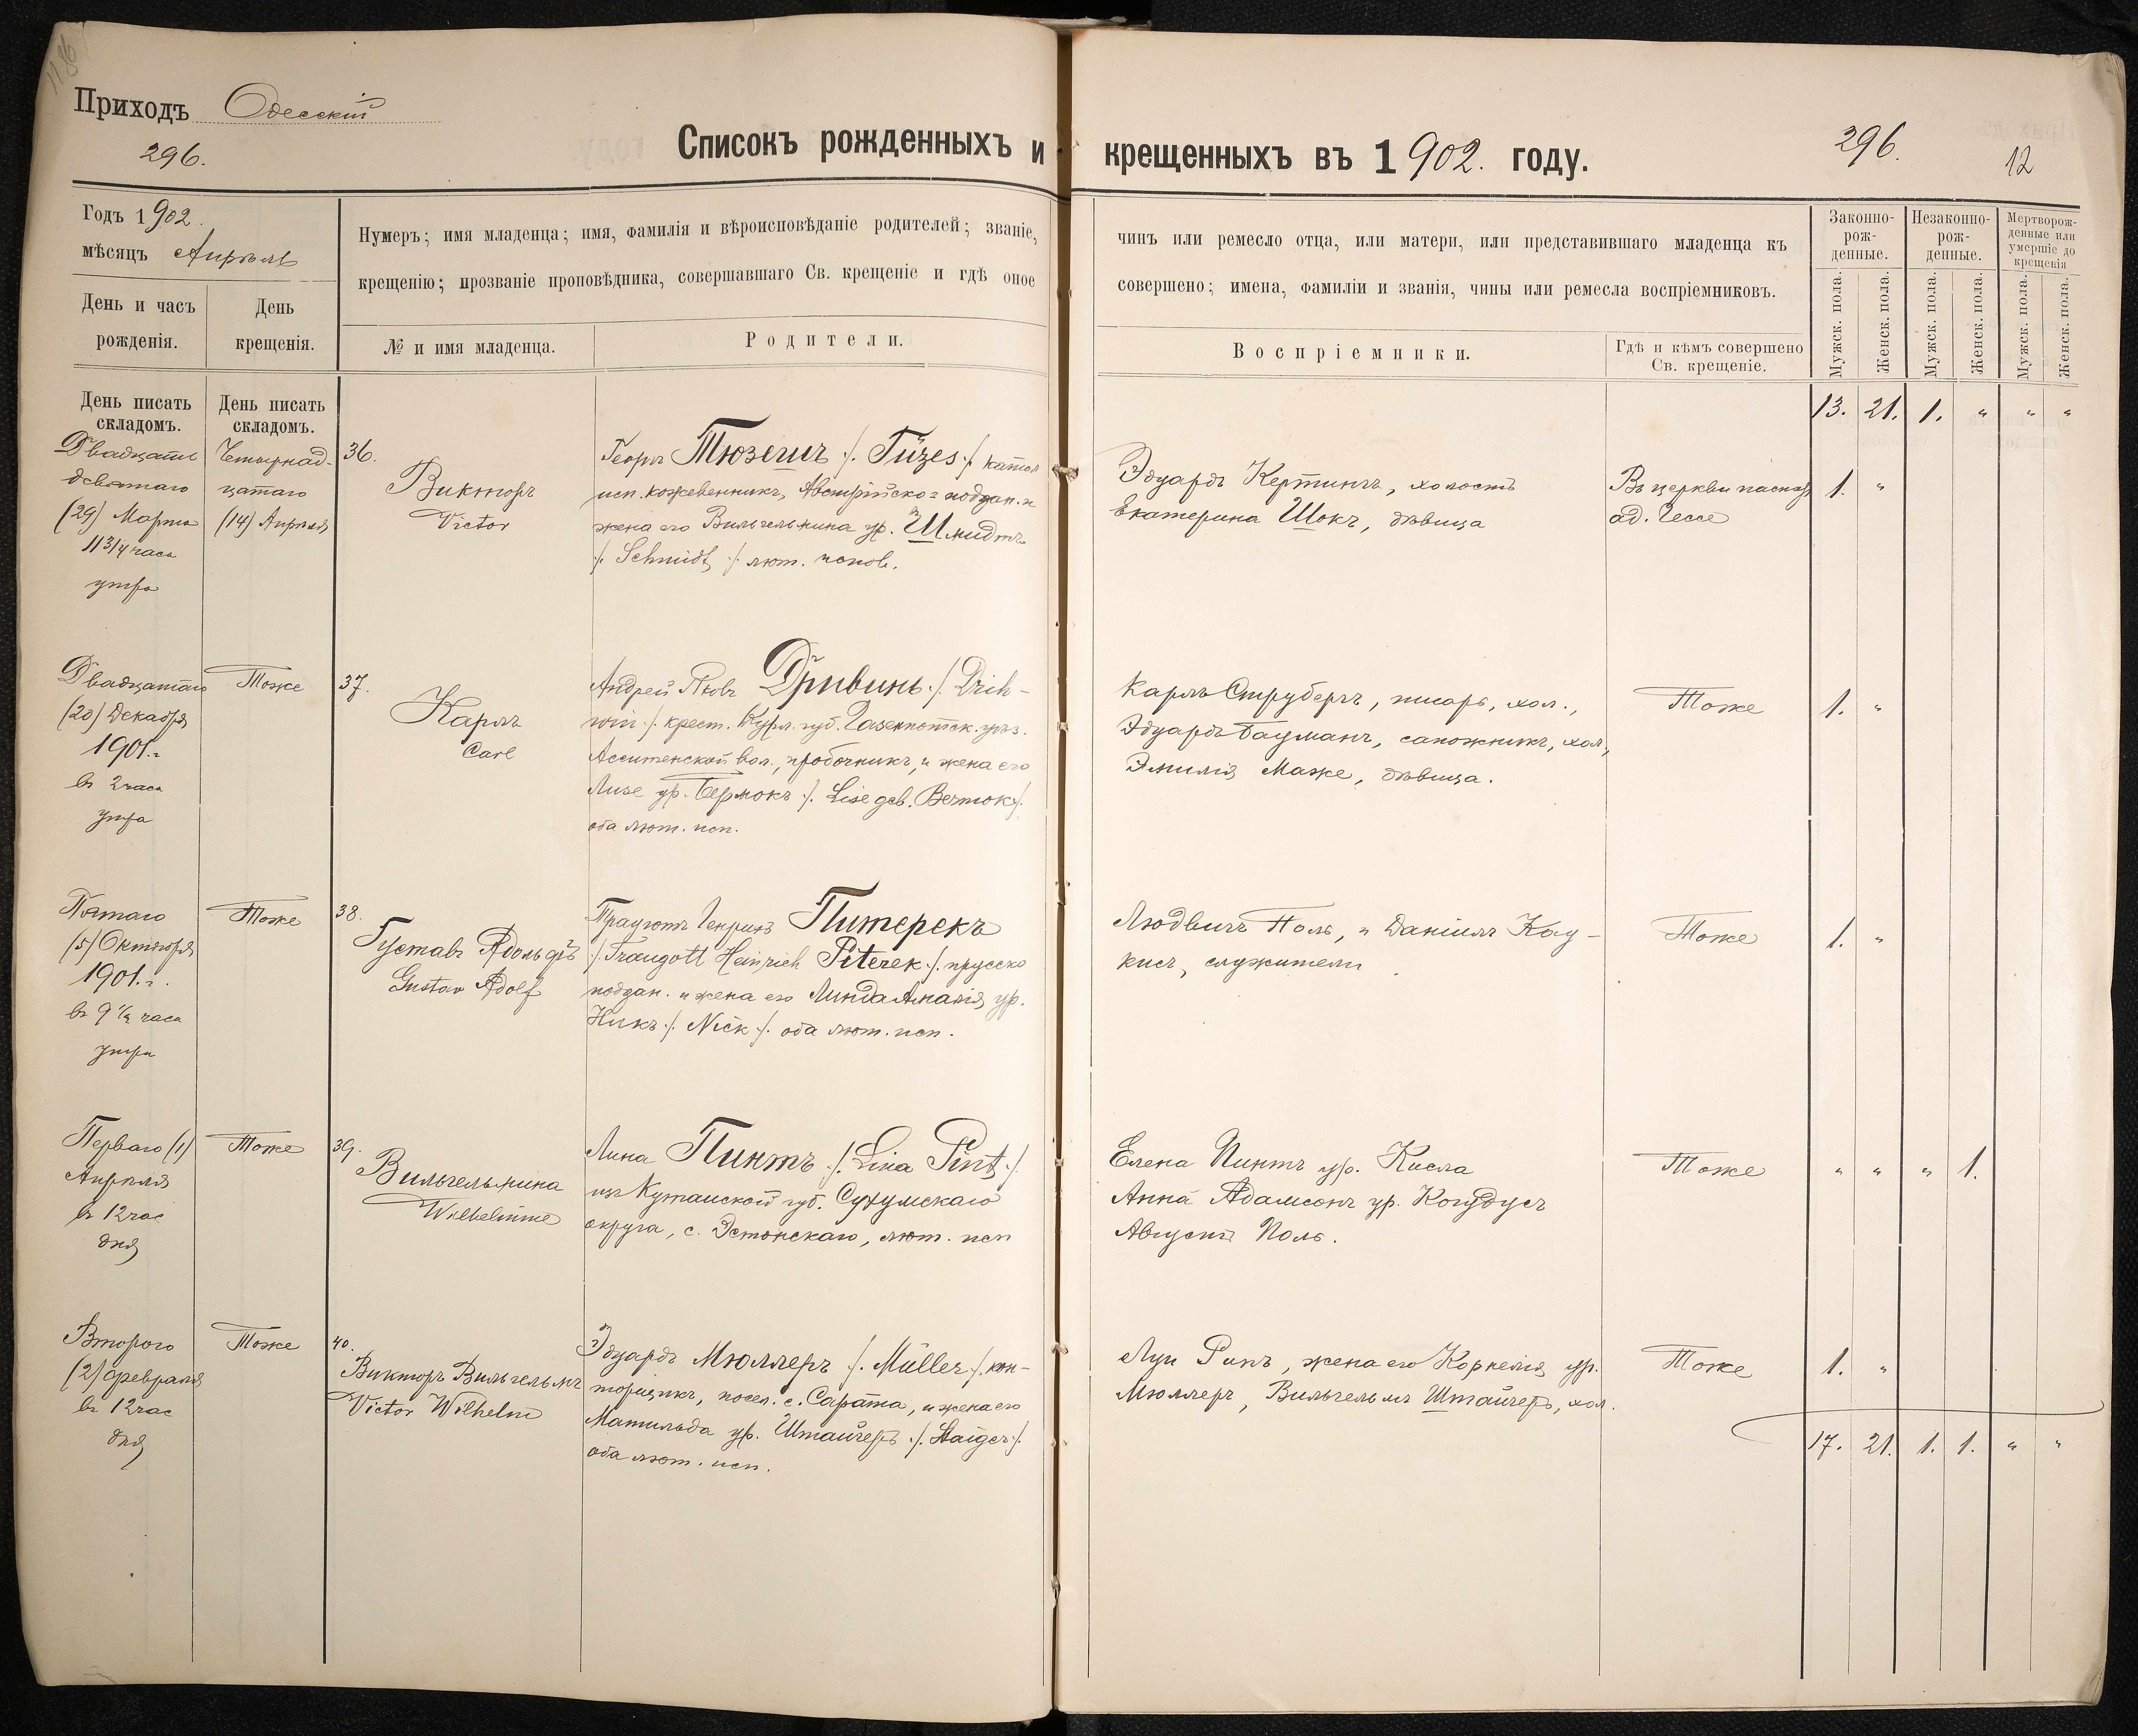 1186
Приходъ Одесскій
296.
Списокъ рожденныхъ и крещенныхъ въ 1902. году.
296.
12
Годъ 1902.
мѣсяцъ Апрѣль
День и часъ рожденія.
День крещенія.
Нумеръ; имя младенца; имя, фамилія и вѣроисповѣданіе родителей; званіе,
крещенію; прозваніе проповѣдника, совершавшаго Св. крещеніе и гдѣ оное
№ и имя младенца.
Родители.
чинъ или ремесло отца, или матери, или представившаго младенца къ
совершено; имена, фамиліи и званія, чины или ремесла воспріемниковъ.
Воспріемники.
Гдѣ и кѣмъ совершено
Св. крещеніе.
Законно-
рож-
денные.
Незаконно-
рож-
денные.
Мертворож-
денные или
умершіе до
крещенія
Мужск. пола.
Женск. пола.
Мужск. пола.
Женск. пола.
Мужск. пола.
Женск. пола.
День писать
складомъ.
День писать
складомъ.
13. 21. 1. " " "
Двадцать
девятаго
(29) Марта
11 3/4 часа
утра
Четырнад-
цатаго
(14) Апрѣля
36.
Викторъ
Victor
Георгъ Тюзешъ /. Tüzes ./ катол
исп. кожевенникъ, Австрійско= поддан. и
жена его Вильгельмина ур. Шмидтъ
/. Schmidt ./ лют. испов.
Эдуардъ Кертингъ, холостъ
Екатерина Шокъ, дѣвица
Въ церкви пасторъ
ад. Гессе
1. "
Двадцатаго
(20) Декабря
1901.г
въ 2 часа
утра
Тоже
37.
Карлъ
Carl
Андрей Яковъ Дривинь ./. Drih-
win ./. крест. Курл. губ. Газенпотск. уѣз.
Асситенской вол., пробочникъ, и жена его
Лизе ур. Бермокъ ./. Lise geb. Bermok ./.
оба лют. исп.
Карлъ Струбергъ, писарь, хол.,
Эдуардъ Бауманъ, сапожникъ, хол.,
Эмилія Маже, дѣвица.
Тоже
1. "
Пятаго
(5) Октября
1901.г.
въ 9 1/2 часа
утра
Тоже
38.
Густавъ Адольфъ
Gustav Adolf
Трауготъ Генрихъ Питерекъ
./. Traugott Heinrich Piterek ./. прусско
поддан. и жена его Линда Амалія ур.
Никъ ./. Nick ./. оба лют. исп.
Людвигъ Поль, и Даніилъ Кау-
кисъ, служители
Тоже
1. "
Перваго (1)
Апрѣля
въ 12 час
дня
Тоже
39.
Вильгельмина
Wilhelmine
Лина Пинтъ ./. Lina Pint ./.
изъ Кутаиской губ. Сухумскаго
округа, с. Эстонскаго, лют. исп
Елена Пинтъ ур. Кисла
Анна Адамсонъ ур. Когудусъ
Августъ Поль.
Тоже
" " " 1.
Второго
(2) Февраля
въ 12 час
дня
Тоже
40.
Викторъ Вильгельмъ
Victor Wilhelm
Эдуардъ Мюллеръ ./. Müller ./. кон-
торщикъ, посел. с. Сарата, и жена его
Матильда ур. Штайгеръ ./. Staiger ./.
оба лют. исп.
Луи Рапъ, жена его Корнелія ур.
Мюллеръ, Вильгельмъ Штайгеръ, хол.
Тоже
1. "
17. 21. 1. 1. " "